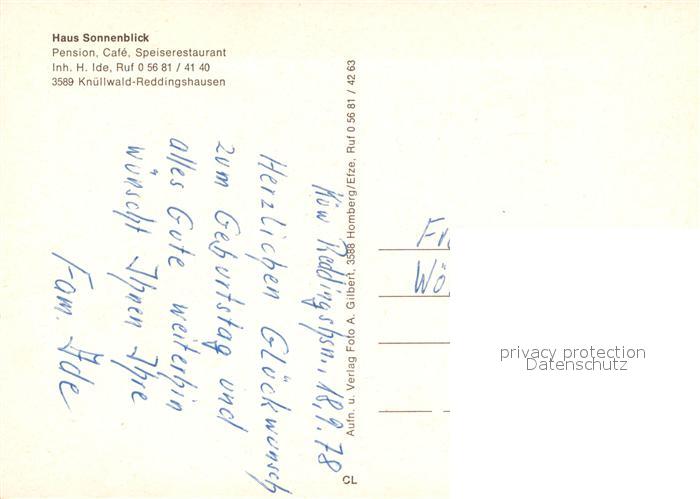 Haus Sonnenblick
Pension, Café, Speiserestaurant
Inh. H. Ide, Ruf 0 56 81 / 41 40
3589 Knüllwald-Reddingshausen
Knw Reddingshsn., 18.9.78
Herzlichen Glückwunsch
zum Geburtstag und
alles Gute weiterhin
wünscht Ihnen Ihre
Fam. Ide
Aufn. u. Verlag Foto A. Gilbert, 3588 Homberg/Efze, Ruf 0 56 81 / 42 63
CL
Fr
Wö
privacy protection
Datenschutz